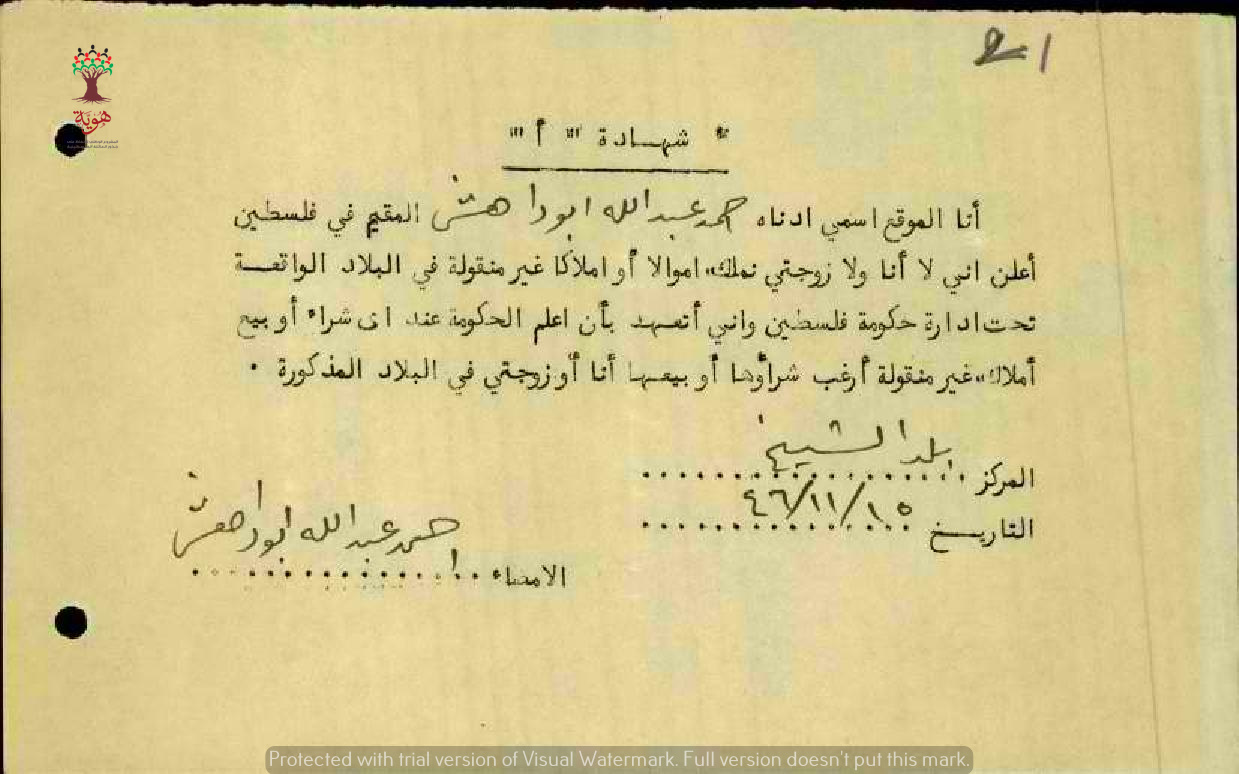 21
هوية
" شهادة " أ ""
أنا الموقع اسمي ادناه احمد عبد الله ابو دا هش المقيم في فلسطين
أعلن اني لا أنا ولا زوجتي نملك اموالا أو املاكا غير منقولة في البلاد الواقعة
تحت ادارة حكومة فلسطين واني أتعهد بأن اعلم الحكومة عند اى شراء أو بيع
أملاك غير منقولة أرغب شراؤها أو بيعها أنا أو زوجتي في البلاد المذكورة ٠
المركز بلد الشيخ
التاريخ ١٥/١١/٤٦
الامضاء احمد عبد الله ابو داهش
Protected with trial version of Visual Watermark. Full version doesn't put this mark.